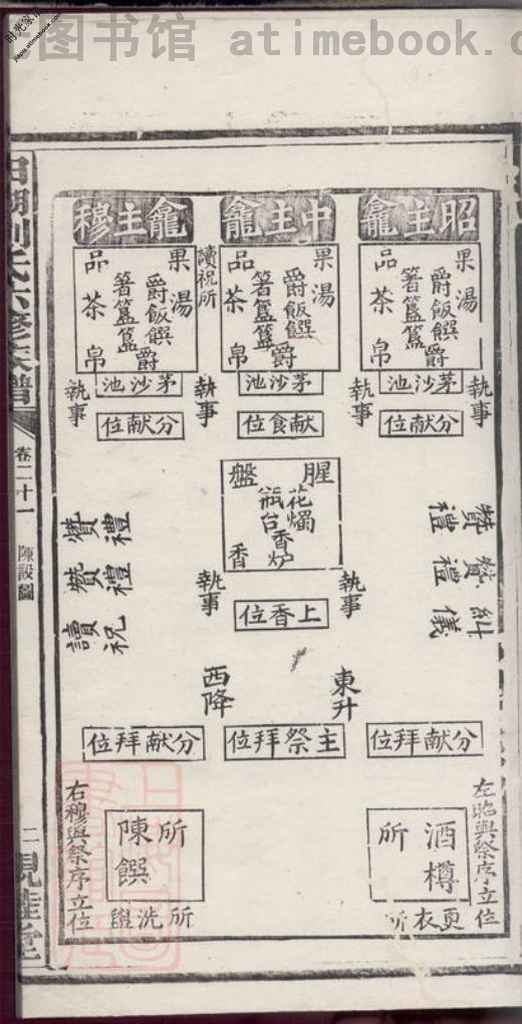 图书馆 atimebook.c
昭主龕
中主龕
穆主龕
果 品
湯 茶
爵飯饌爵
箸簋簋
帛
果 品
湯 茶
爵飯饌爵
箸簋簋
帛
讀祝所
果 品
湯 茶
爵飯饌爵
箸簋簋
帛
執事
茅沙池
執事
茅沙池
執事
茅沙池
執事
分献位
献食位
分献位
腥 盤
花瓶
燭台
香炉
香
執事
執事
上香位
贊禮
贊禮
糾儀
贊禮
贊禮
讀祝
東升
西降
分献拜位
主祭拜位
分献拜位
左昭與祭序立位
酒樽所
更衣所
陳饌所
盥洗所
右穆與祭序立位
卷二十一
陳設圖
二